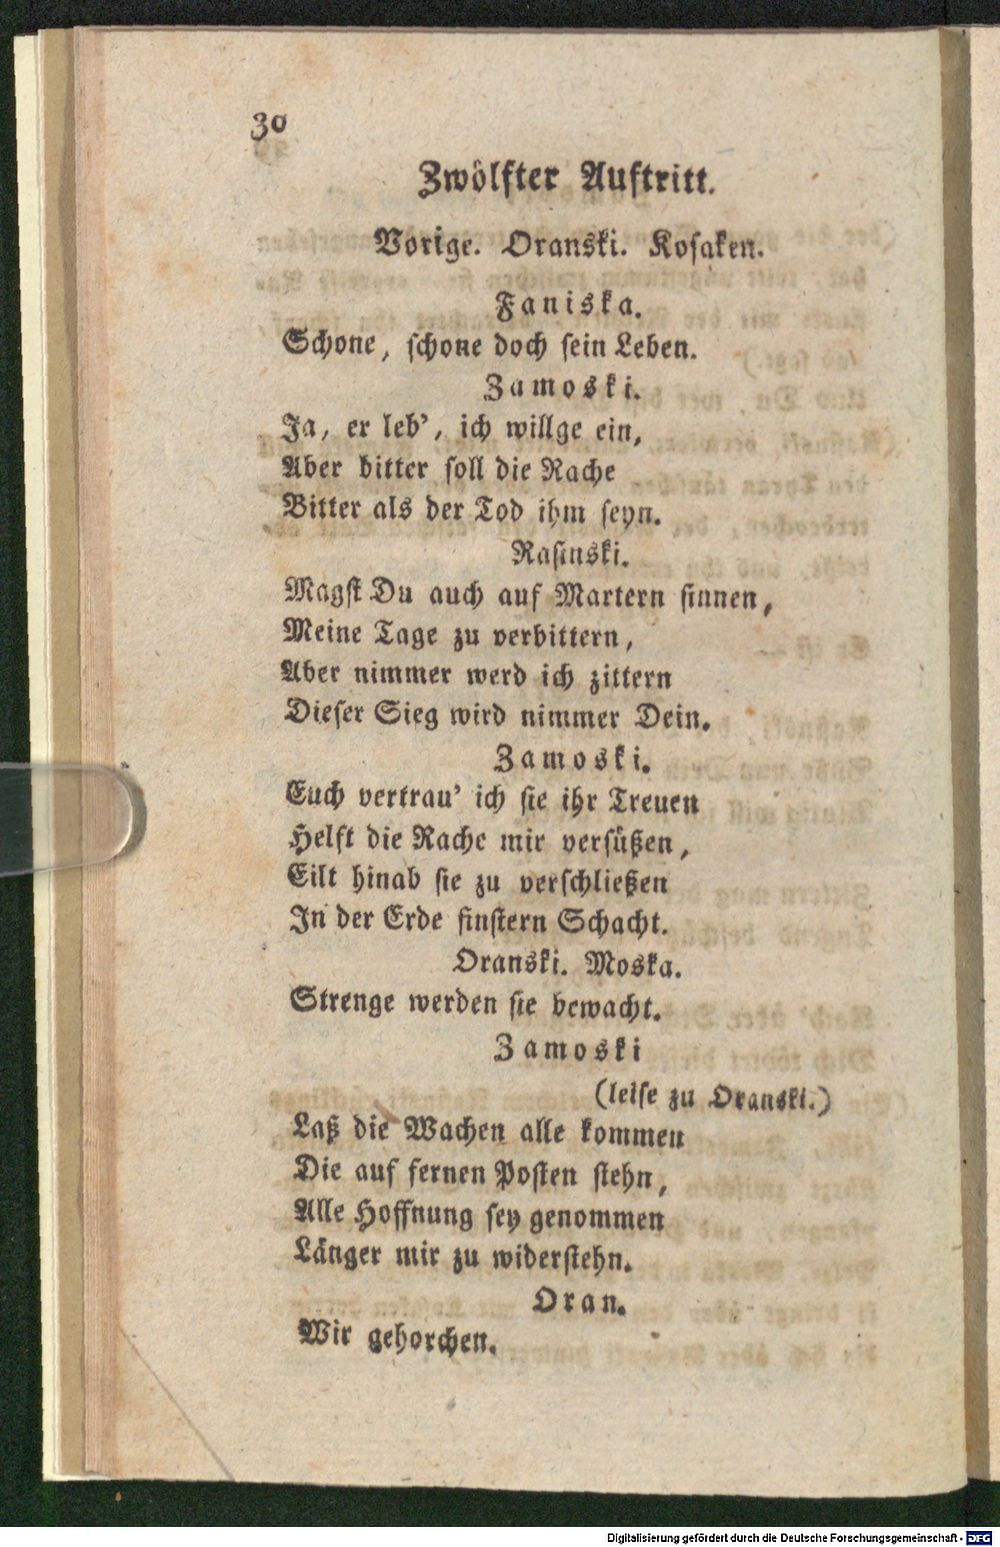 30
Zwölfter Auftritt.
Vorige. Oranski. Kosaken.
Faniska.
Schone, schone doch sein Leben.
Zamoski.
Ja, er leb', ich willge ein,
Aber bitter soll die Rache
Bitter als der Tod ihm seyn.
Rasinski.
Magst Du auch auf Martern sinnen,
Meine Tage zu verbittern,
Aber nimmer werd ich zittern
Dieser Sieg wird nimmer Dein.
Zamoski.
Euch vertrau' ich sie ihr Treuen
Helft die Rache mir versüßen,
Eilt hinab sie zu verschließen
In der Erde finstern Schacht.
Oranski. Moska.
Strenge werden sie bewacht.
Zamoski
(leise zu Oranski.)
Laß die Wachen alle kommen
Die auf fernen Posten stehn,
Alle Hoffnung sey genommen
Länger mir zu widerstehn.
Oran.
Wir gehorchen.
Digitalisierung gefördert durch die Deutsche Forschungsgemeinschaft - DFG